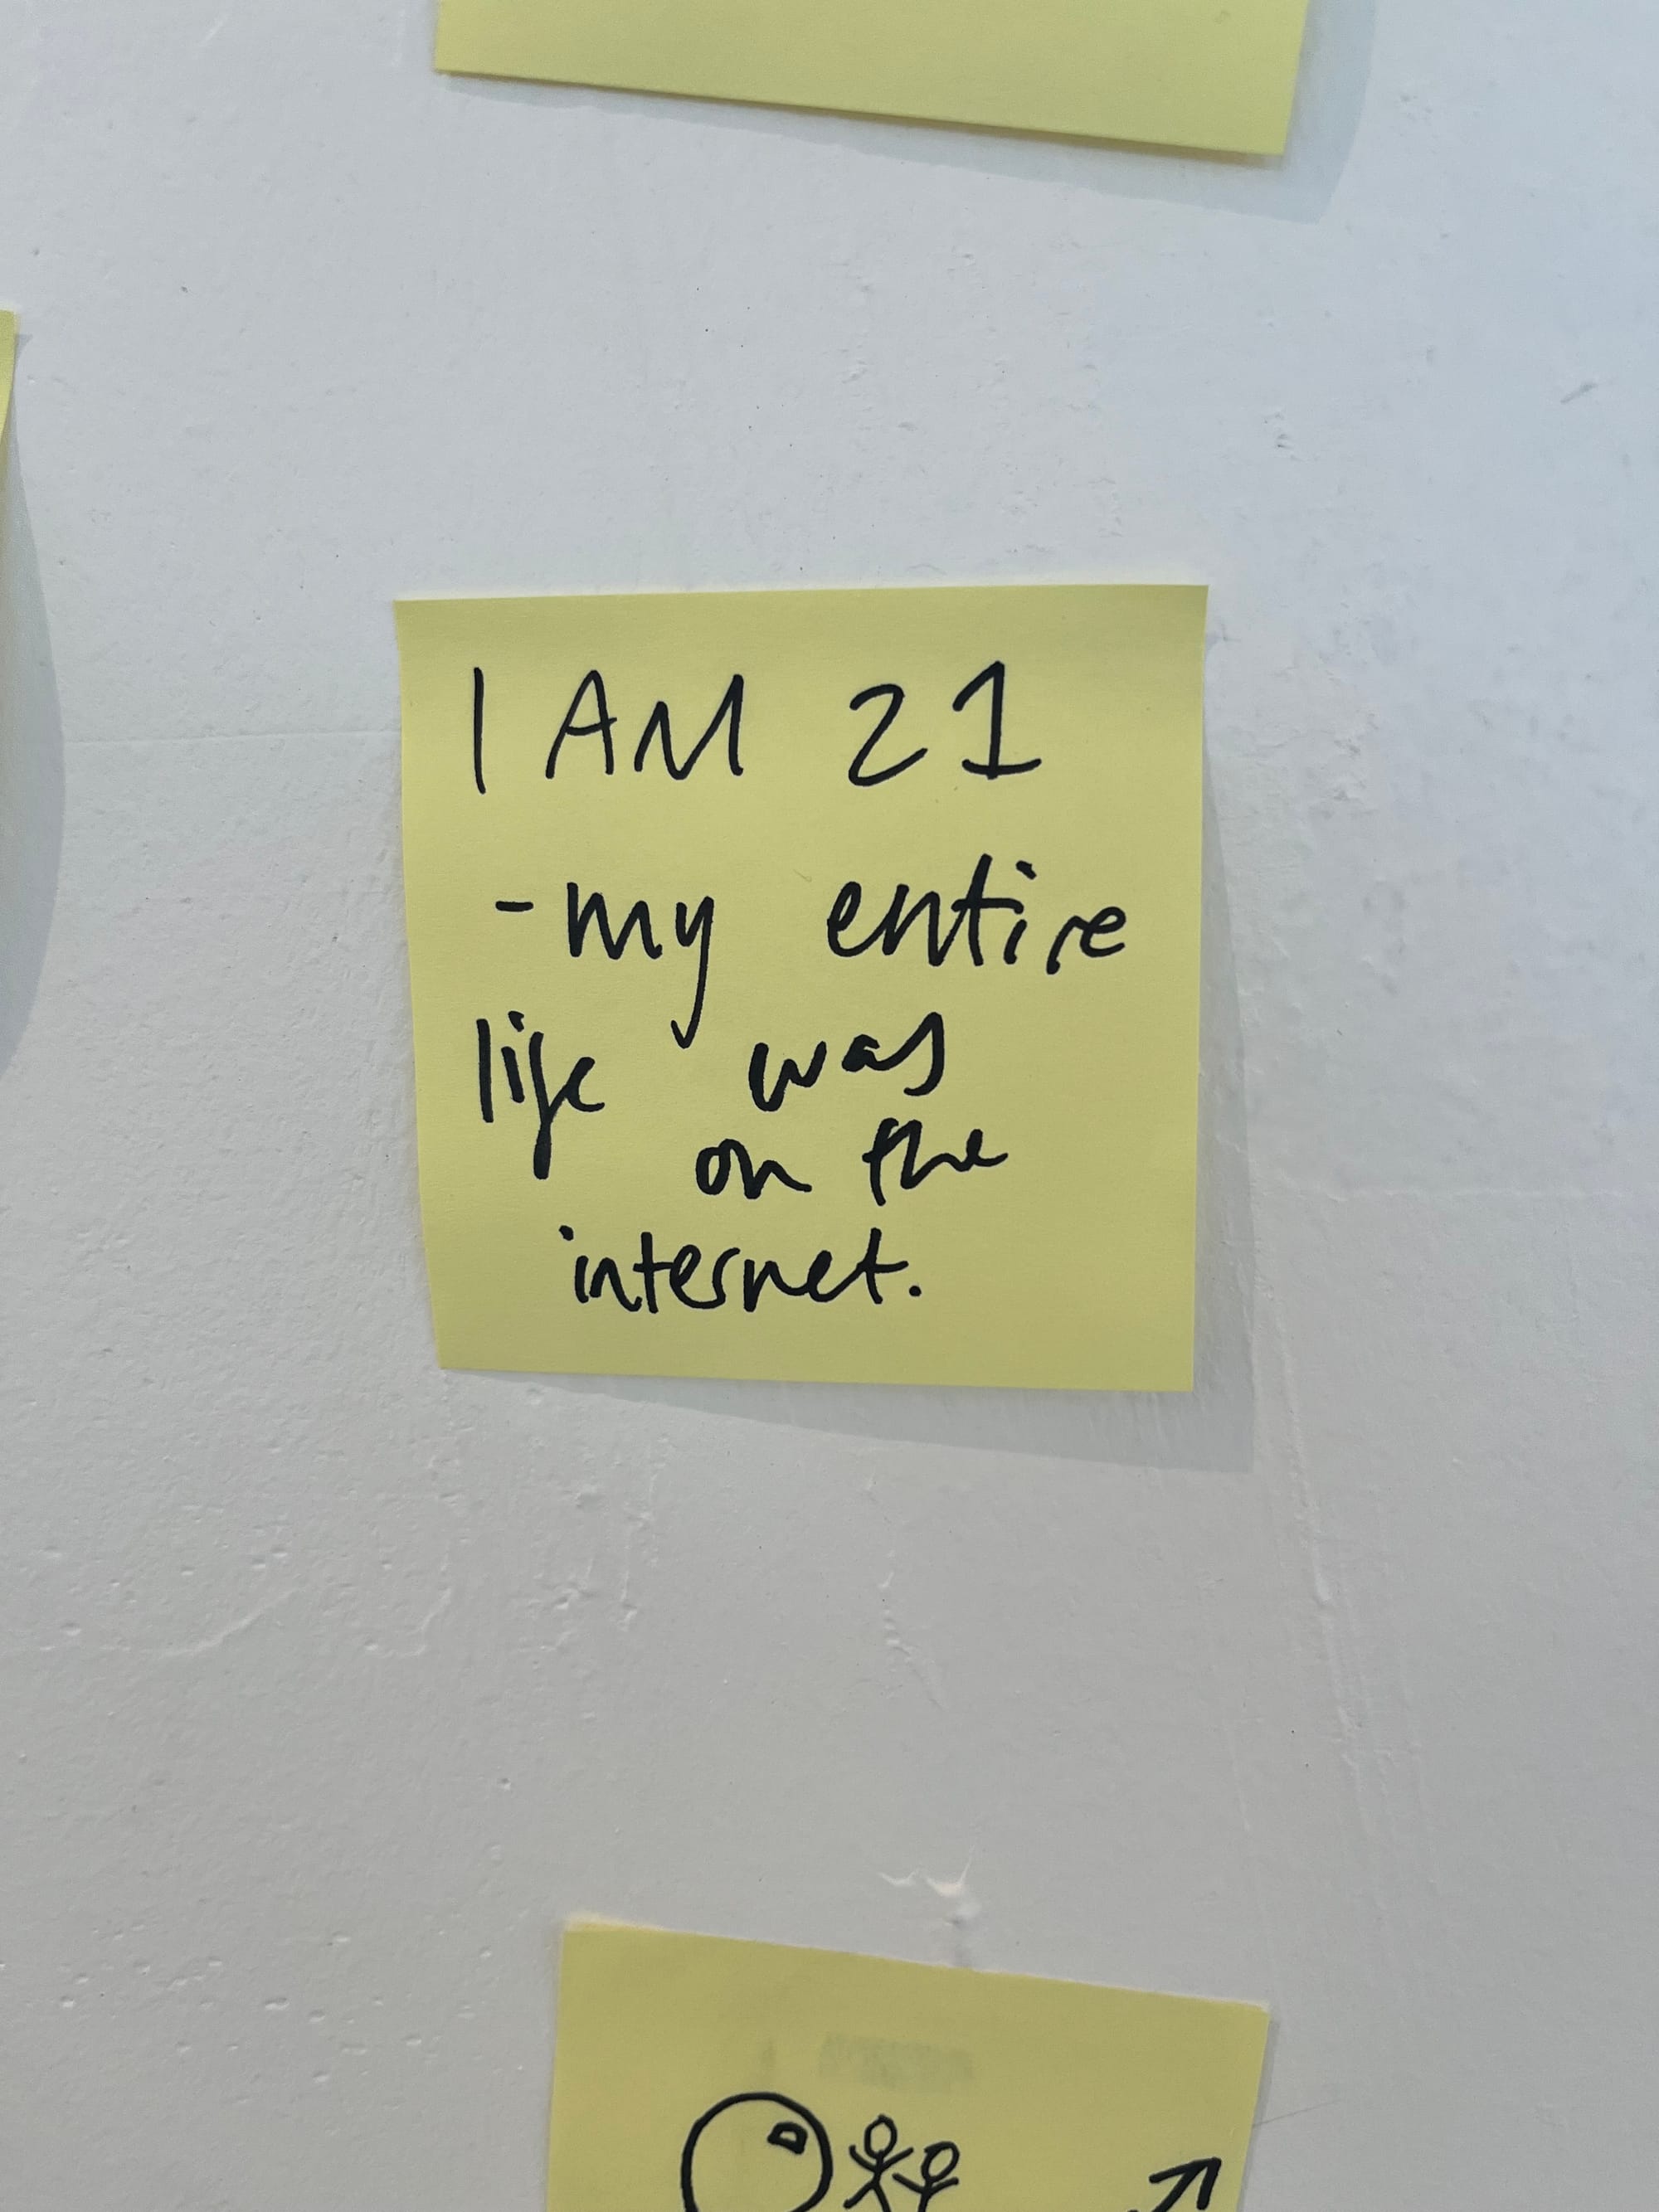 I AM 21
- my entire
life was
on the
internet.